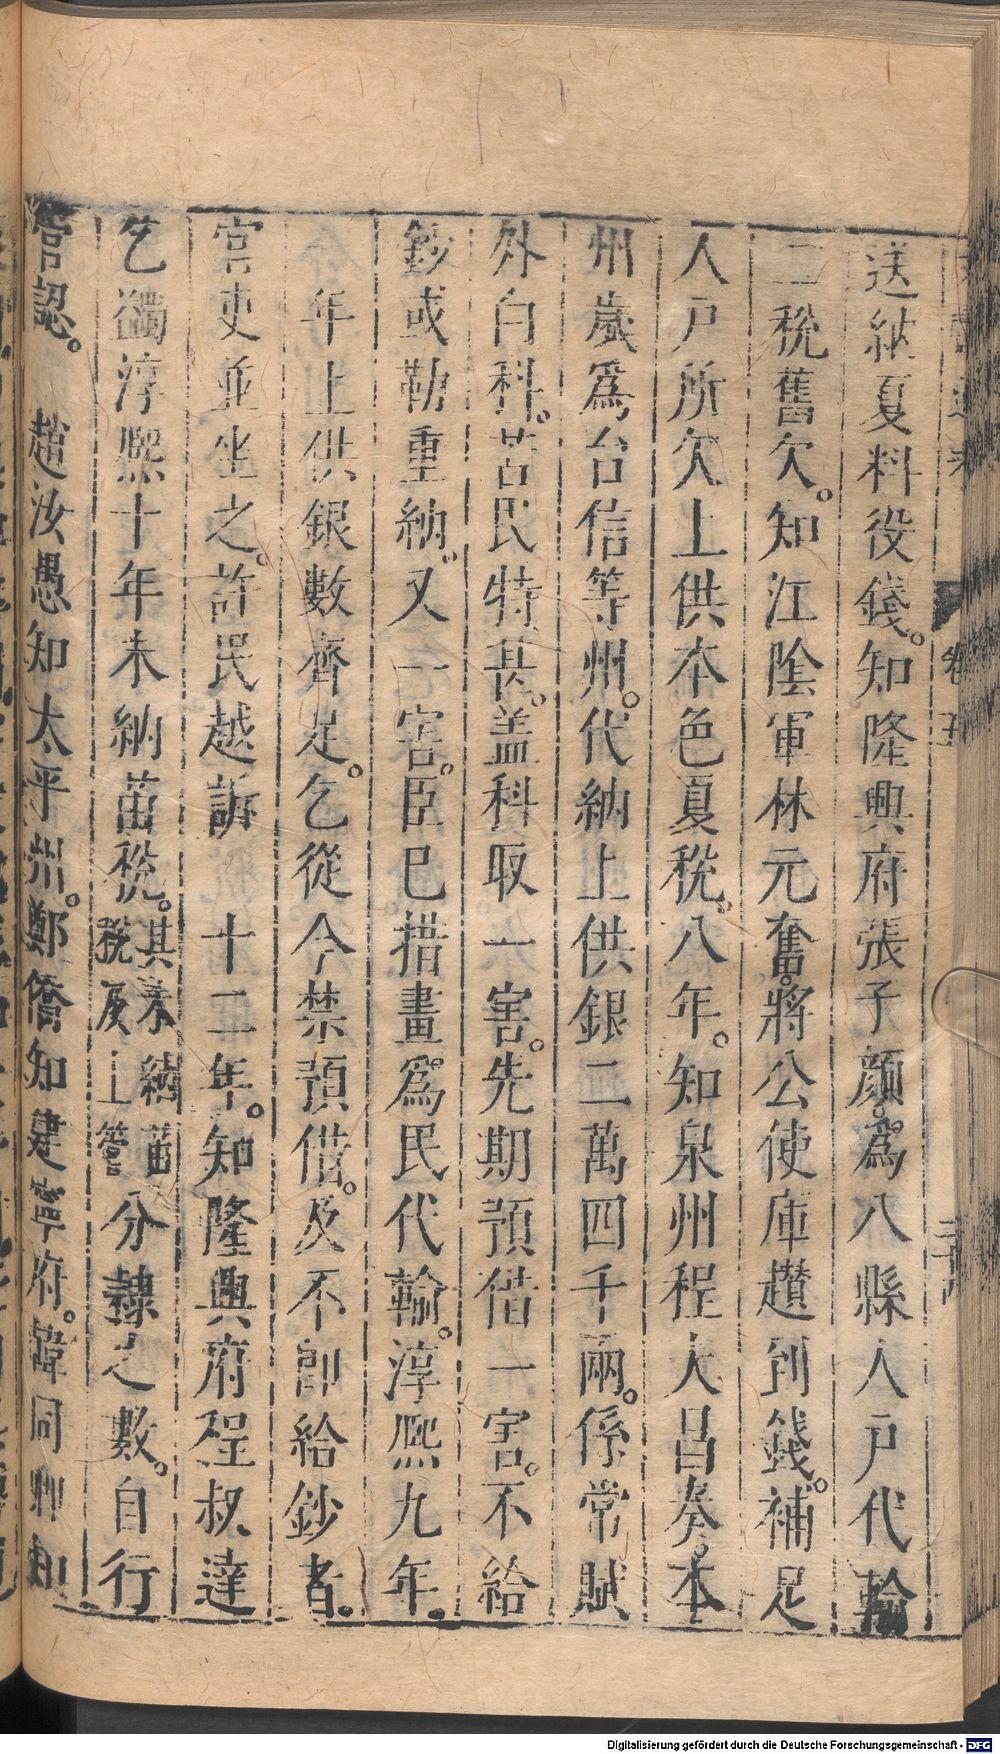 卷五
送納夏料役錢。知隆興府張子顔。爲八縣人户代輸
二稅舊欠。知江陰軍林元奮。將公使庫趲到錢。補足
人户所欠上供本色夏稅。八年。知泉州程大昌奏。本
州歲爲台信等州。代納上供銀二萬四千兩。係常賦
外白科。苦民特甚。盖科取一害。先期預借一害。不給
鈔或勒重納。又一害。臣已措畫爲民代輸。淳熙九年。
年上供銀數齊足。乞從今禁預借。及不卽給鈔者。
官吏並坐之。許民越訴 十二年。知隆興府程叔達
乞蠲淳熙十年未納苗稅。其未納苗稅及上管分隷之數。自行
管認。 趙汝愚知太平州。鄭僑知建寧府。韓同卿知
Digitalisierung gefördert durch die Deutsche Forschungsgemeinschaft - DFG